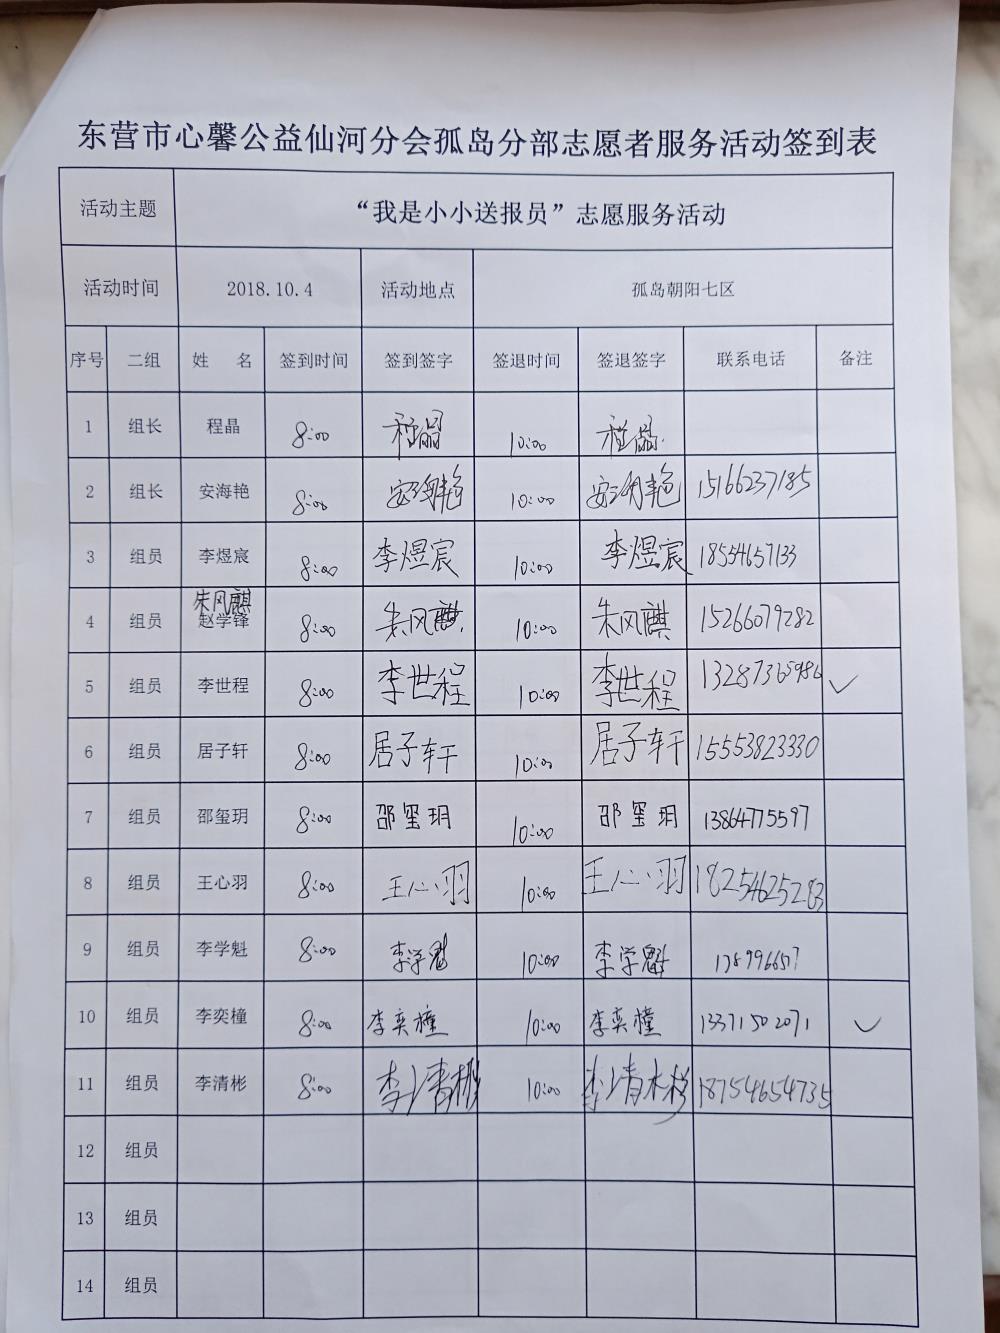 东营市心馨公益仙河分会孤岛分部志愿者服务活动签到表
活动主题 “我是小小送报员”志愿服务活动
活动时间 2018.10.4 活动地点 孤岛朝阳七区
序号 二组 姓 名 签到时间 签到签字 签退时间 签退签字 联系电话 备注
1 组长 程晶 8:00 程晶 10:00 程晶
2 组长 安海艳 8:00 安海艳 10:00 安海艳 15166237185
3 组员 李煜宸 8:00 李煜宸 10:00 李煜宸 18554657133
朱风麒
4 组员 赵学锋 8:00 朱风麒 10:00 朱风麒 15266079282
5 组员 李世程 8:00 李世程 10:00 李世程 13287365986 ✓
6 组员 居子轩 8:00 居子轩 10:00 居子轩 15553823330
7 组员 邵玺玥 8:00 邵玺玥 10:00 邵玺玥 13864775597
8 组员 王心羽 8:00 王心羽 10:00 王心羽 18254625283
9 组员 李学魁 8:00 李学魁 10:00 李学魁
10 组员 李奕橦 8:00 李奕橦 10:00 李奕橦 13371502071 ✓
11 组员 李清彬 8:00 李清彬 10:00 李清彬 18754654735
12 组员
13 组员
14 组员